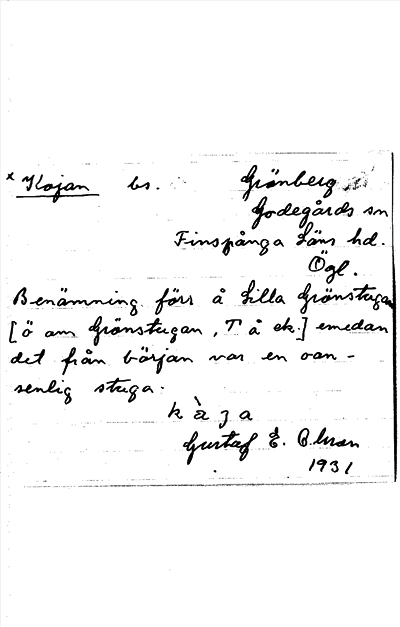 x Kojan bs. Grönberg
Godegårds sn
Finspånga Läns hd.
Ögl.
Benämning förr å Lilla Grönstugan
[ö om Grönstugan, T å ek.] emedan
det från början var en oan-
senlig stuga.
k à j a
Gustaf E.
1931